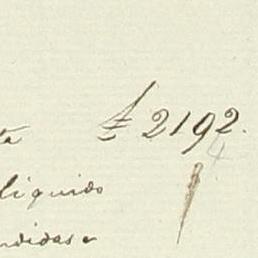 ta £ 2192.
4
liquido
ndidas e